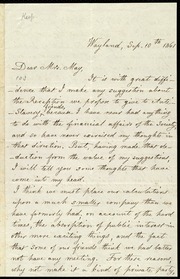 Wayland, Sep. 10th 1861
Dear Mrs. May,
It is with great diffi-
dence that I make any suggestion about
the Reception we propose to give to Anti
Slavery friends, because I have never had anything
to do with the financial affairs of the Society,
and so have never exercised my thoughts in
that direction. But, having made that de-
duction from the value of my suggestions,
I will tell you some thoughts that have
come into my head.
I think we must place our calculations
upon a much smaller company than we
have formerly had, on account of the hard
times, the absorption of public interest in
other more exciting things and the fact
that some of our friends think we had better
not have any meeting. For these reasons,
why not make it a kind of private party